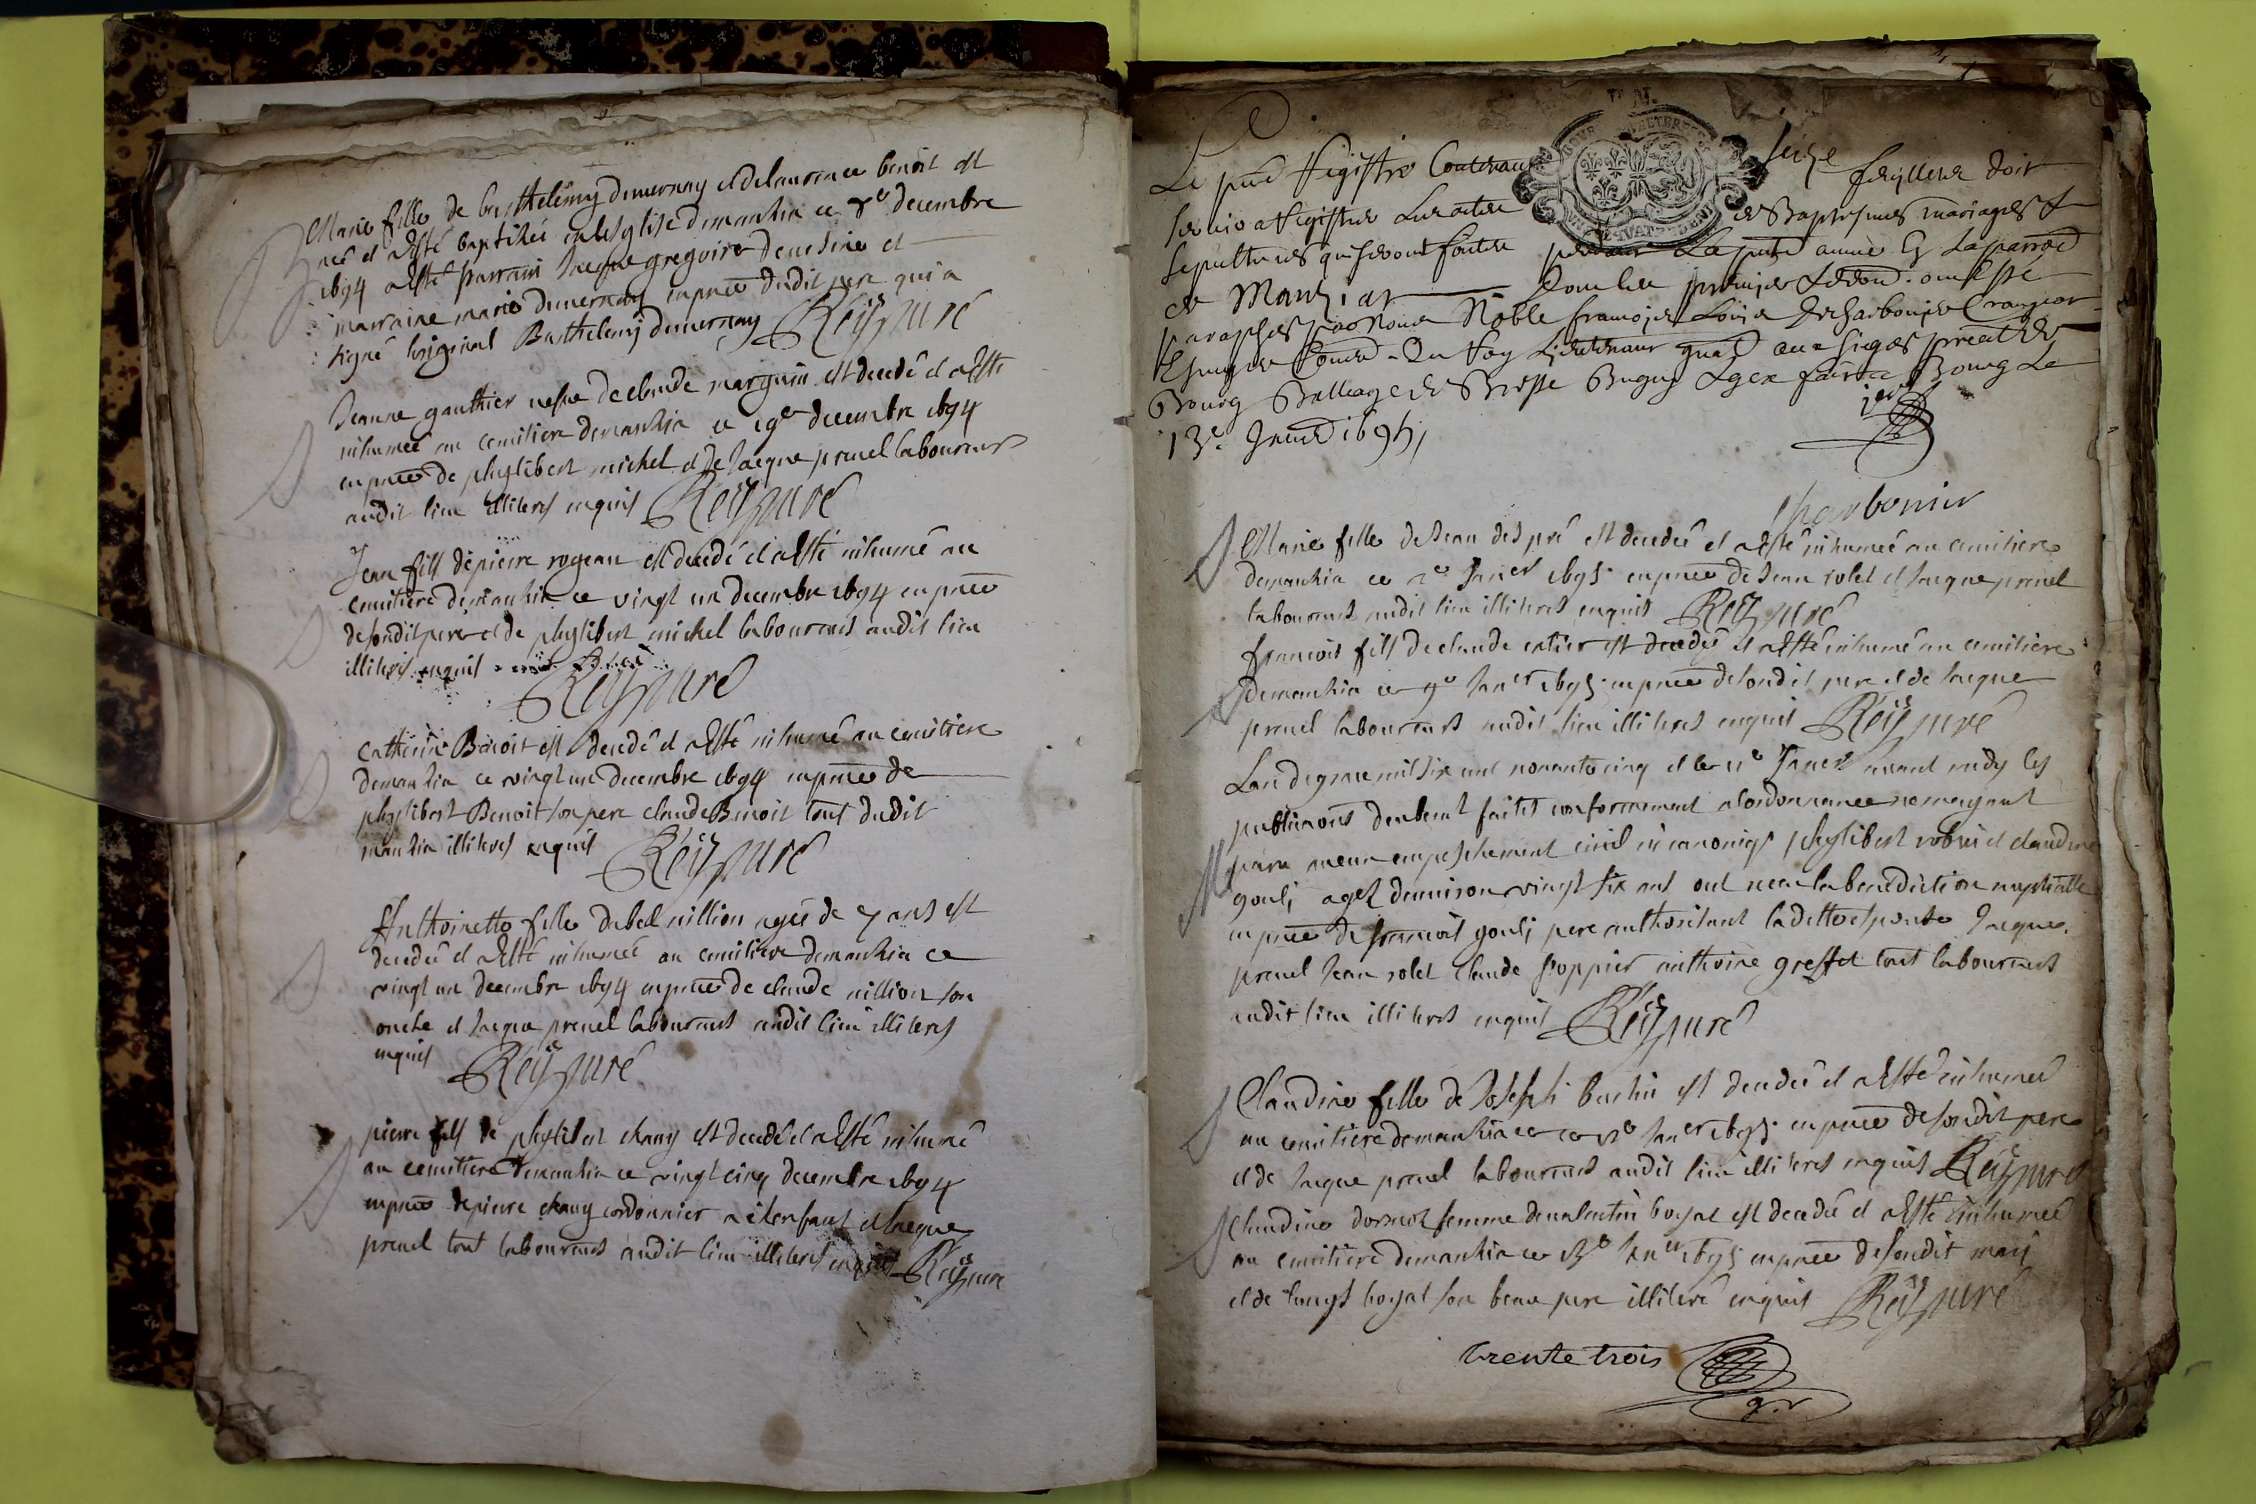 Marie fille de barthelemy dumernay et de laurance benoit est
née et a esté baptisée en lesglise demanzia ce decembre
1694 a esté parrain Jacque gregoire et
marraine marie dumernay en pnce dudit pere qui a
signé loriginal Barthelemy dumernay Reÿ curé
Jeanne gauthier vefve de claude marguin est decedé et a esté
inhumeé au cemitiere demanzia ce 19e decembre 1694
en pnce de phylibert michel et de Jacque prevel laboureurs
audit lieu illiteres enquis Reÿ curé
Jean fils de pierre rogeau est decedé et a esté inhumé au
cemitiere demanzia ce vingt un decembre 1694 en pnce
de sondit pere et de phylibert michel laboureurs audit lieu
illiteres enquis
Reÿ curé
Catherine Benoit est decedé et a esté inhumé au cemitiere
demanzia ce vingt un decembre 1694 en pnce de
phylibert Benoit son pere claude Benoit tout dudit
manzia illiteres enquis Reÿ curé
Anthoinette fille dabel million agée de 7 ans est
decedeé et a esté inhumeé au cemitiere demanzia ce
vingt un decembre 1694 en pnce de claude million son
oncle et Jacque prevel laboureurs audit lieu illiteres
enquis Reÿ curé
pierre fils de phylibert chany est decedé et a esté inhumé
au cemitiere demanzia ce vingt cinq decembre 1694
en pnce de pierre chany cordonnier et Jacque
prevel tout laboureurs audit lieu illiteres enquis Reÿ curé
Le pnt Registre Contenant seize feuillets doit
servir a Registrer Les actes de Baptesmes mariages &
sepultures qui seront faites pendant La pnte année En La parroë
de Manziat Dont les premier & dernier ont Esté
paraphés par Nous Noble françois Louis Decharbonnier Crangeac
Escuyer Conser du Roy Lieutenant gnal aux sieges
Bourg Balliage de Bresse Bugey & gex fait a Bourg Le
13e Janvr 1695
Charbonnier
Marie fille de Jean des pré est decedeé et a esté inhumeé au cemitiere
demanzia ce Janer 1695 en pnce de Jean rolet et Jacque prevel
laboureurs audit lieu illiteres enquis Reÿ curé
francois fils de claude catier est decedé et a esté inhumé au cemitiere
demanzia ce 9e Janer 1695 en pnce de sondit pere et de Jacque
prevel laboureurs audit lieu illiteres enquis Reÿ curé
Lan de grace mil six cent nonante cinq et le 11e Janer avant midy les
publications deubement faites conformement a lordonnance ne mayant
paru aucun empeschement civil ni canonique phylibert robin et claudine
gouli agez denviron vingt six ans ont receu la benediction nuptialle
en pnce de francois gouli pere authorisant ladette espouse Jacque
prevel Jean rolet claude poppier anthoine greffet tout laboureurs
audit lieu illiteres enquis Reÿ curé
Claudine fille de Joseph buchin est decedeé et a esté inhumeé
au cemitiere demanzia ce Janer 1695 en pnce de sondit pere
et de Jacque prevel laboureurs audit lieu illiteres enquis Reÿ curé
Claudine femme de valentin boyat est decedeé et a esté inhumeé
au cemitiere demanzia ce Janer 1695 en pnce de sondit mari
et de louys boyat son beau pere illiteré enquis Reÿ curé
trente trois